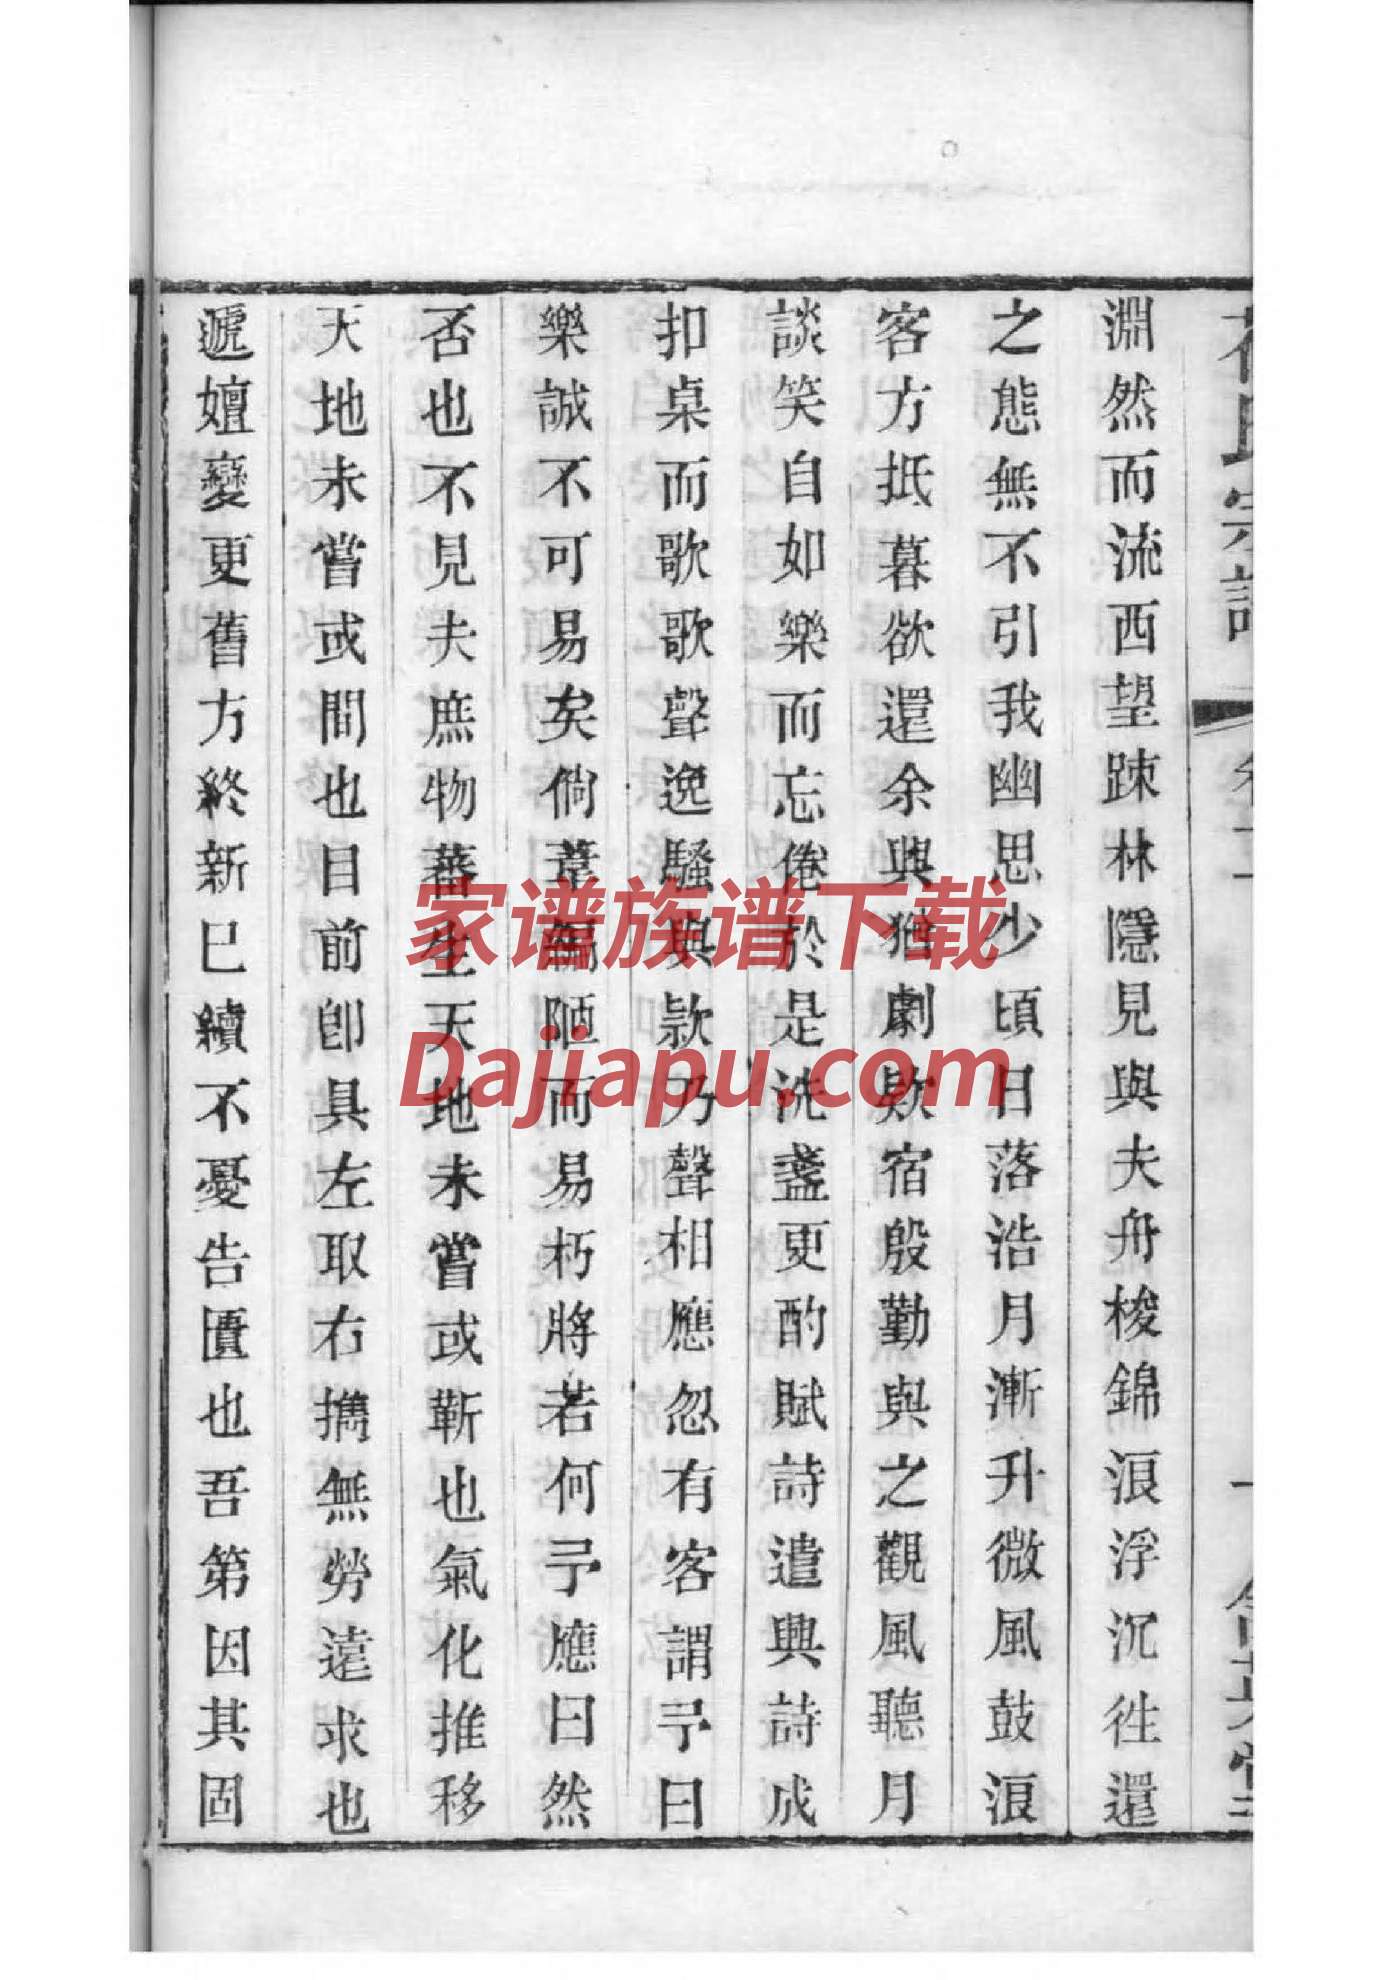 淵然而流西望踈林隱見與夫舟梭錦浪浮沉徃還
之態無不引我幽思少頃日落浩月漸升微風鼓浪
客方抵暮欲還余與猶劇欵宿殷勤與之觀風聽月
談笑自如樂而忘倦於是洗盞更酌賦詩遣興詩成
扣桌而歌歌聲逸騷與欵乃聲相應忽有客謂予曰
樂誠不可易矣倘葦編陋而易朽將若何予應曰然
否也不見夫庶物蕃生天地未嘗或靳也氣化推移
天地未嘗或間也目前卽具左取右擕無勞遠求也
遞嬗變更舊方終新巳續不憂告匱也吾第因其固
家谱族谱下载
Dajiapu.com